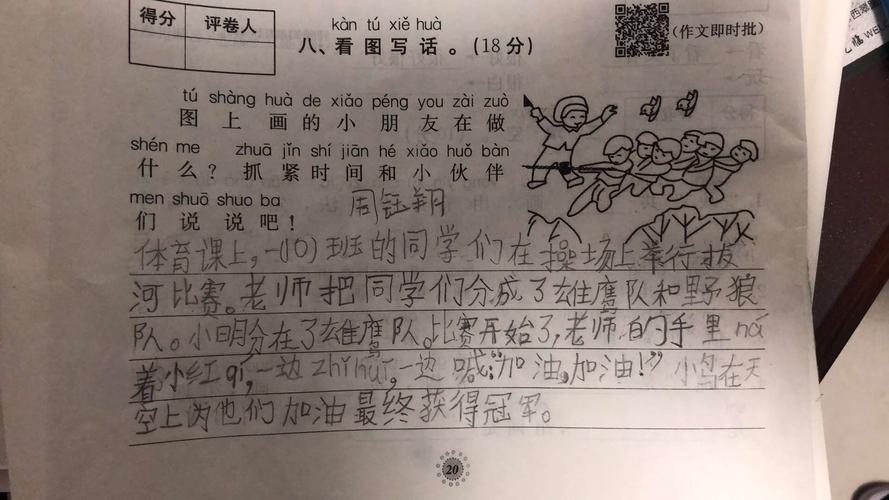 得分 评卷人
kàn tú xiě huà
八、看图写话。(18分)
(作文即时批)
tú shàng huà de xiǎo péng you zài zuò
图上画的小朋友在做
shén me zhuā jǐn shí jiān hé xiǎo huǒ bàn
什么?抓紧时间和小伙伴
men shuō shuo ba
们说说吧!
周钰翔
体育课上,一(10)班的同学们在操场上举行拔
河比赛。老师把同学们分成了雄鹰队和野狼
队。小明分在了雄鹰队。比赛开始了,老师的手里ná
着小红qí,一边zhǐhuī,一边喊:“加油,加油!”小鸟在天
空上为他们加油最终获得冠军。
20